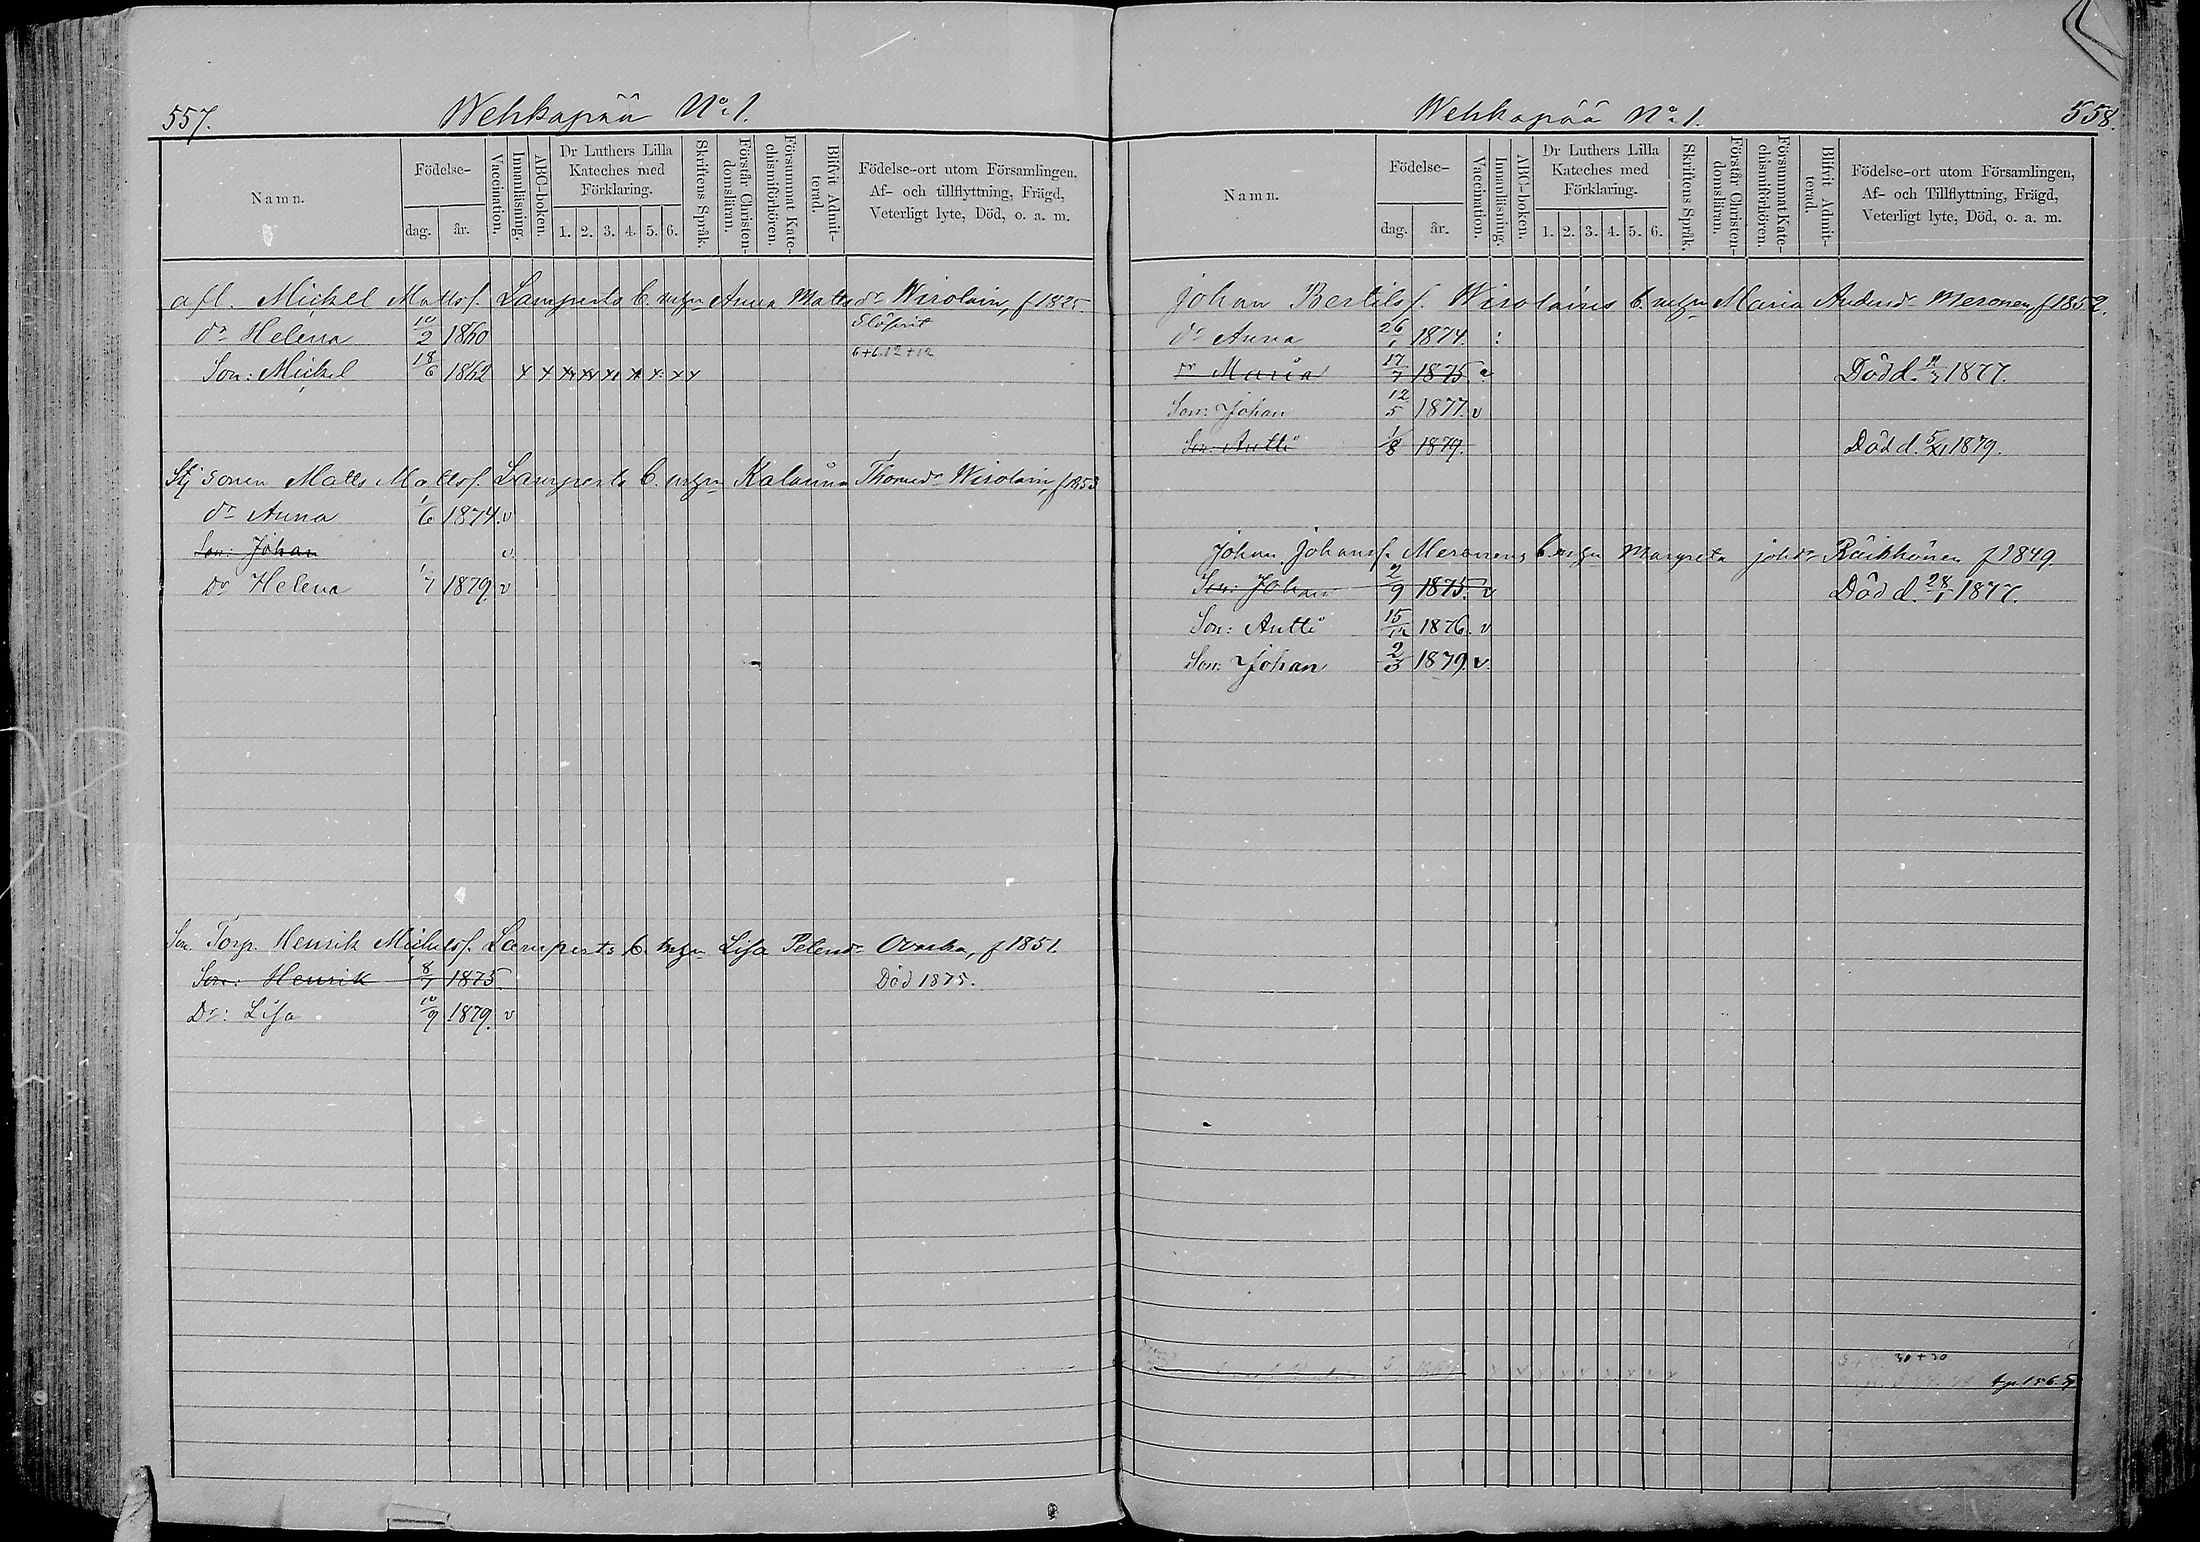 557.
Wehkapää No 1.
Namn.
Födelse-
dag.
år.
Vaccination.
Innanläsning.
ABC-boken.
Dr Luthers Lilla Kateches med Förklaring.
1. 2. 3. 4. 5. 6.
Skriftens Språk.
Förstår Christen-domsläran.
Försummat Kate-chismiförhören.
Blifvit Admit-terad.
Födelse-ort utom Församlingen,
Af- och tillflyttning, Frägd,
Veterligt lyte, Död, o. a. m.
afl. Mickel Mattsf. Lamperts b. m enka Anna Mattsdr Wirolain, f 1825.
dr Helena 10/2 1860
Son: Mickel 18/6 1862 x x x x x x x x x 6+6.12+12
Stjsonen Matts Mattsf. Lamperts b. Thomedr Wirolain, f 1853
dr Anna 1/6 1874. v
Son: Johan v
dr Helena 1/7 1879. v
Son Torp. Henrik Michelsf. Lamperts b. Lisa Petersdr f 1851.
Son: Henrik 8/7 1875. Död 1875.
Dr: Lisa 10/9 1879. v
Wehkapää No 1.
558.
Namn.
Födelse-
dag.
år.
Vaccination.
Innanläsning.
ABC-boken.
Dr Luthers Lilla Kateches med Förklaring.
1. 2. 3. 4. 5. 6.
Skriftens Språk.
Förstår Christen-domsläran.
Försummat Kate-chismiförhören.
Blifvit Admit-terad.
Födelse-ort utom Församlingen,
Af- och Tillflyttning, Frägd,
Veterligt lyte, Död, o. a. m.
Johan Bertilsf. Wirolains b. Maria Andersdr Meronen f 1852.
dr Anna 26/1 1874. :
dr Maria 17/7 1875 Död d. 1877.
Son: Johan 12/5 1877. v
Son: Antti 1/8 1879. Död d. 5/XI 1879.
Johan Johansf. Meronens b. Margreta Johdr Räikkönen f 1849.
Son: Johan 2/9 1875. v Död d. 28/1 1877.
Son: Antti 15/12 1876. v
Son: Johan 2/3 1879 v
30+30